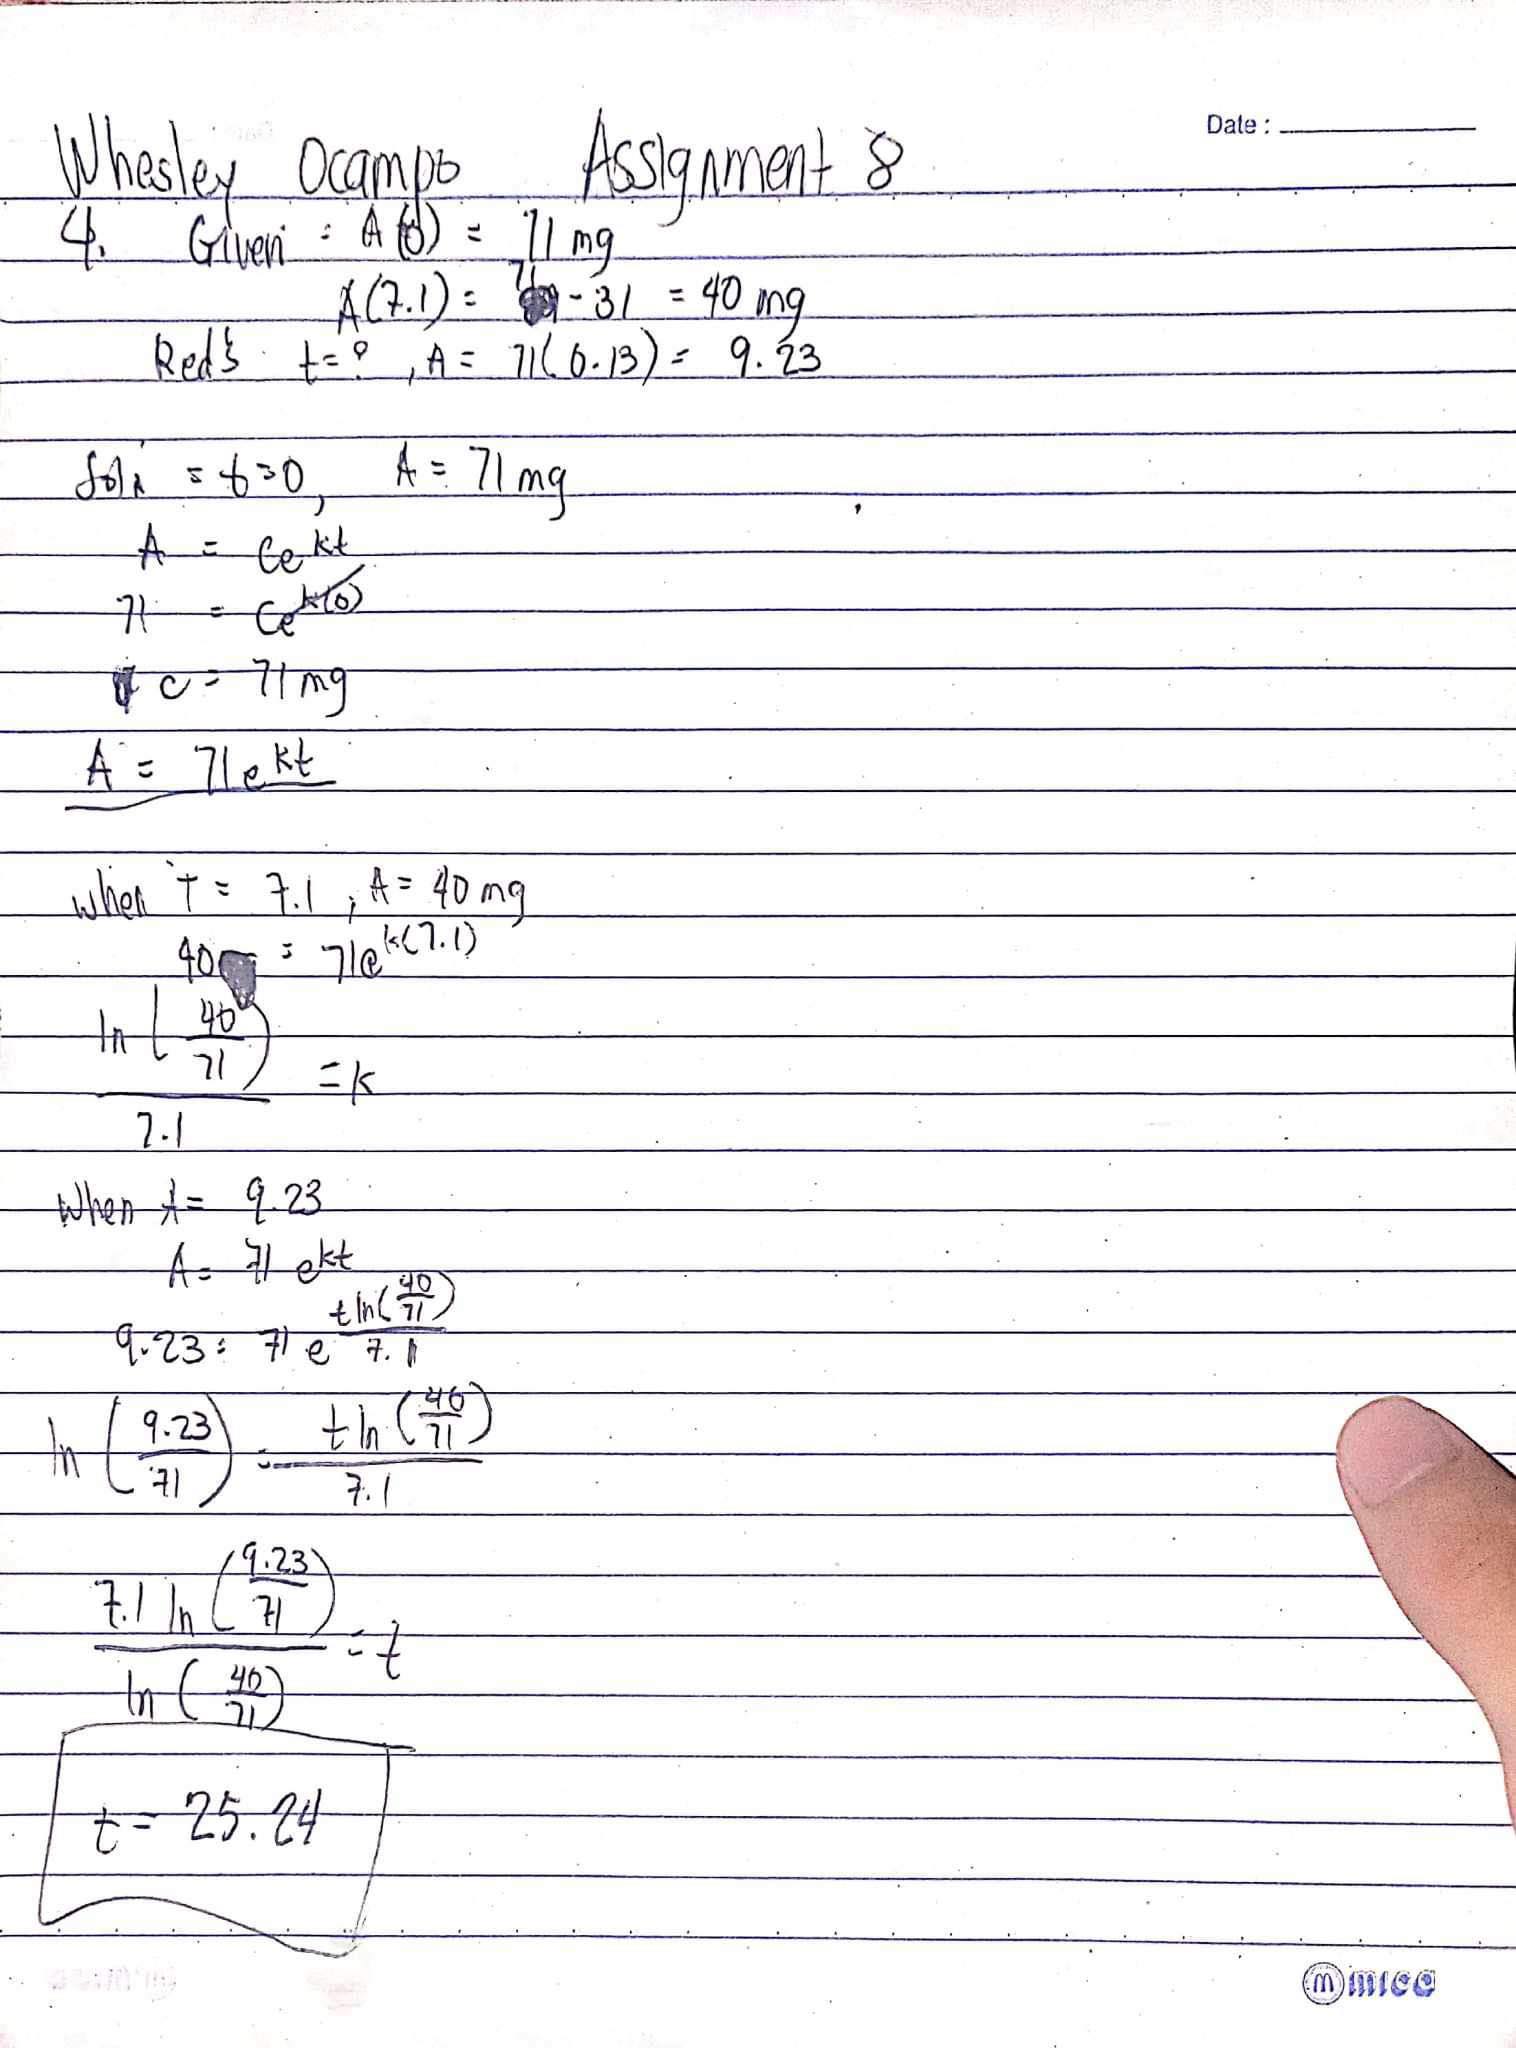 Date :
Whesley Ocampo Assignment 8
4. Given : A(0) = 71 mg
A(7.1) = 71 - 31 = 40 mg
Req'd t = ? , A = 71(0.13) = 9.23
Soln = t=0, A = 71 mg
A = Ce^kt
71 = Ce^k(0)
C = 71 mg
A = 71e^kt
when t = 7.1 , A = 40 mg
40 = 71e^k(7.1)
ln(40/71)/7.1 = k
When A = 9.23
A = 71 e^kt
9.23 = 71 e^(t ln(40/71)/7.1)
ln(9.23/71) = t ln(40/71)/7.1
7.1 ln(9.23/71)/ln(40/71) = t
t = 25.24